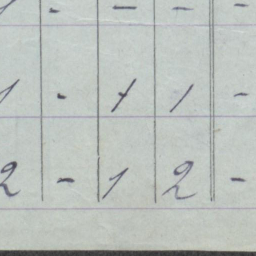 1 - - - -
1 - 1 1 -
2 - 1 2 -